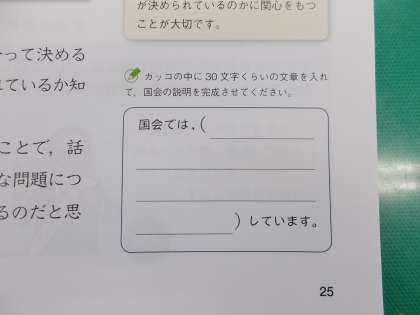 が決められているのかに関心をもつ
ことが大切です。
って決める
れているか知
ことで，話
な問題につ
るのだと思
カッコの中に30文字くらいの文章を入れ
て，国会の説明を完成させてください。
国会では，(
)しています。
25